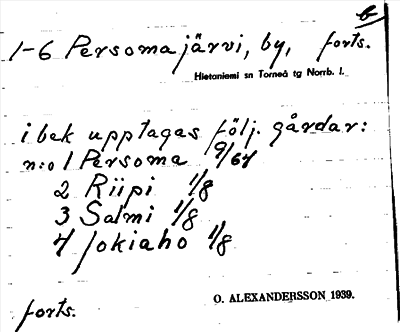 6
1-6 Persomajärvi, by, forts.
Hietaniemi sn Torneå tg Norrb. l.
i bek upptagas följ. gårdar:
n:o 1 Persoma 9/64
2 Riipi 1/8
3 Salmi 1/8
4 Jokiaho 1/8
O. ALEXANDERSSON 1939.
forts.